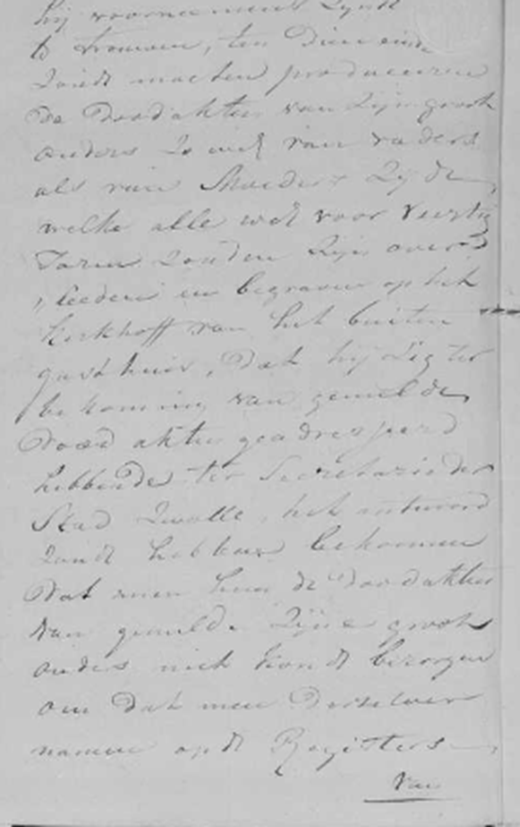 hij voornemens zijnde
te trouwen, ten dien einde
zoude moeten produceeren
de Doodakten van zijn groot
ouders zo wel van vaders
als van Moeders Zyde,
welke alle wel voor veertig
Jaren zouden zijn over-
leeden en begraven op het
kerkhoff van het buiten
gasthuis, dat hij zig ter
bekoming van gemelde
Dood akten geadresseerd
hebbende ter Secretarie der
Stad Zwolle, het antwoord
zoude hebben bekoomen
Dat men hem de Doodakten
van gemelde zijne groot
ouders niet konde bezorgen
om dat men derzelver
namen op de Registers
van